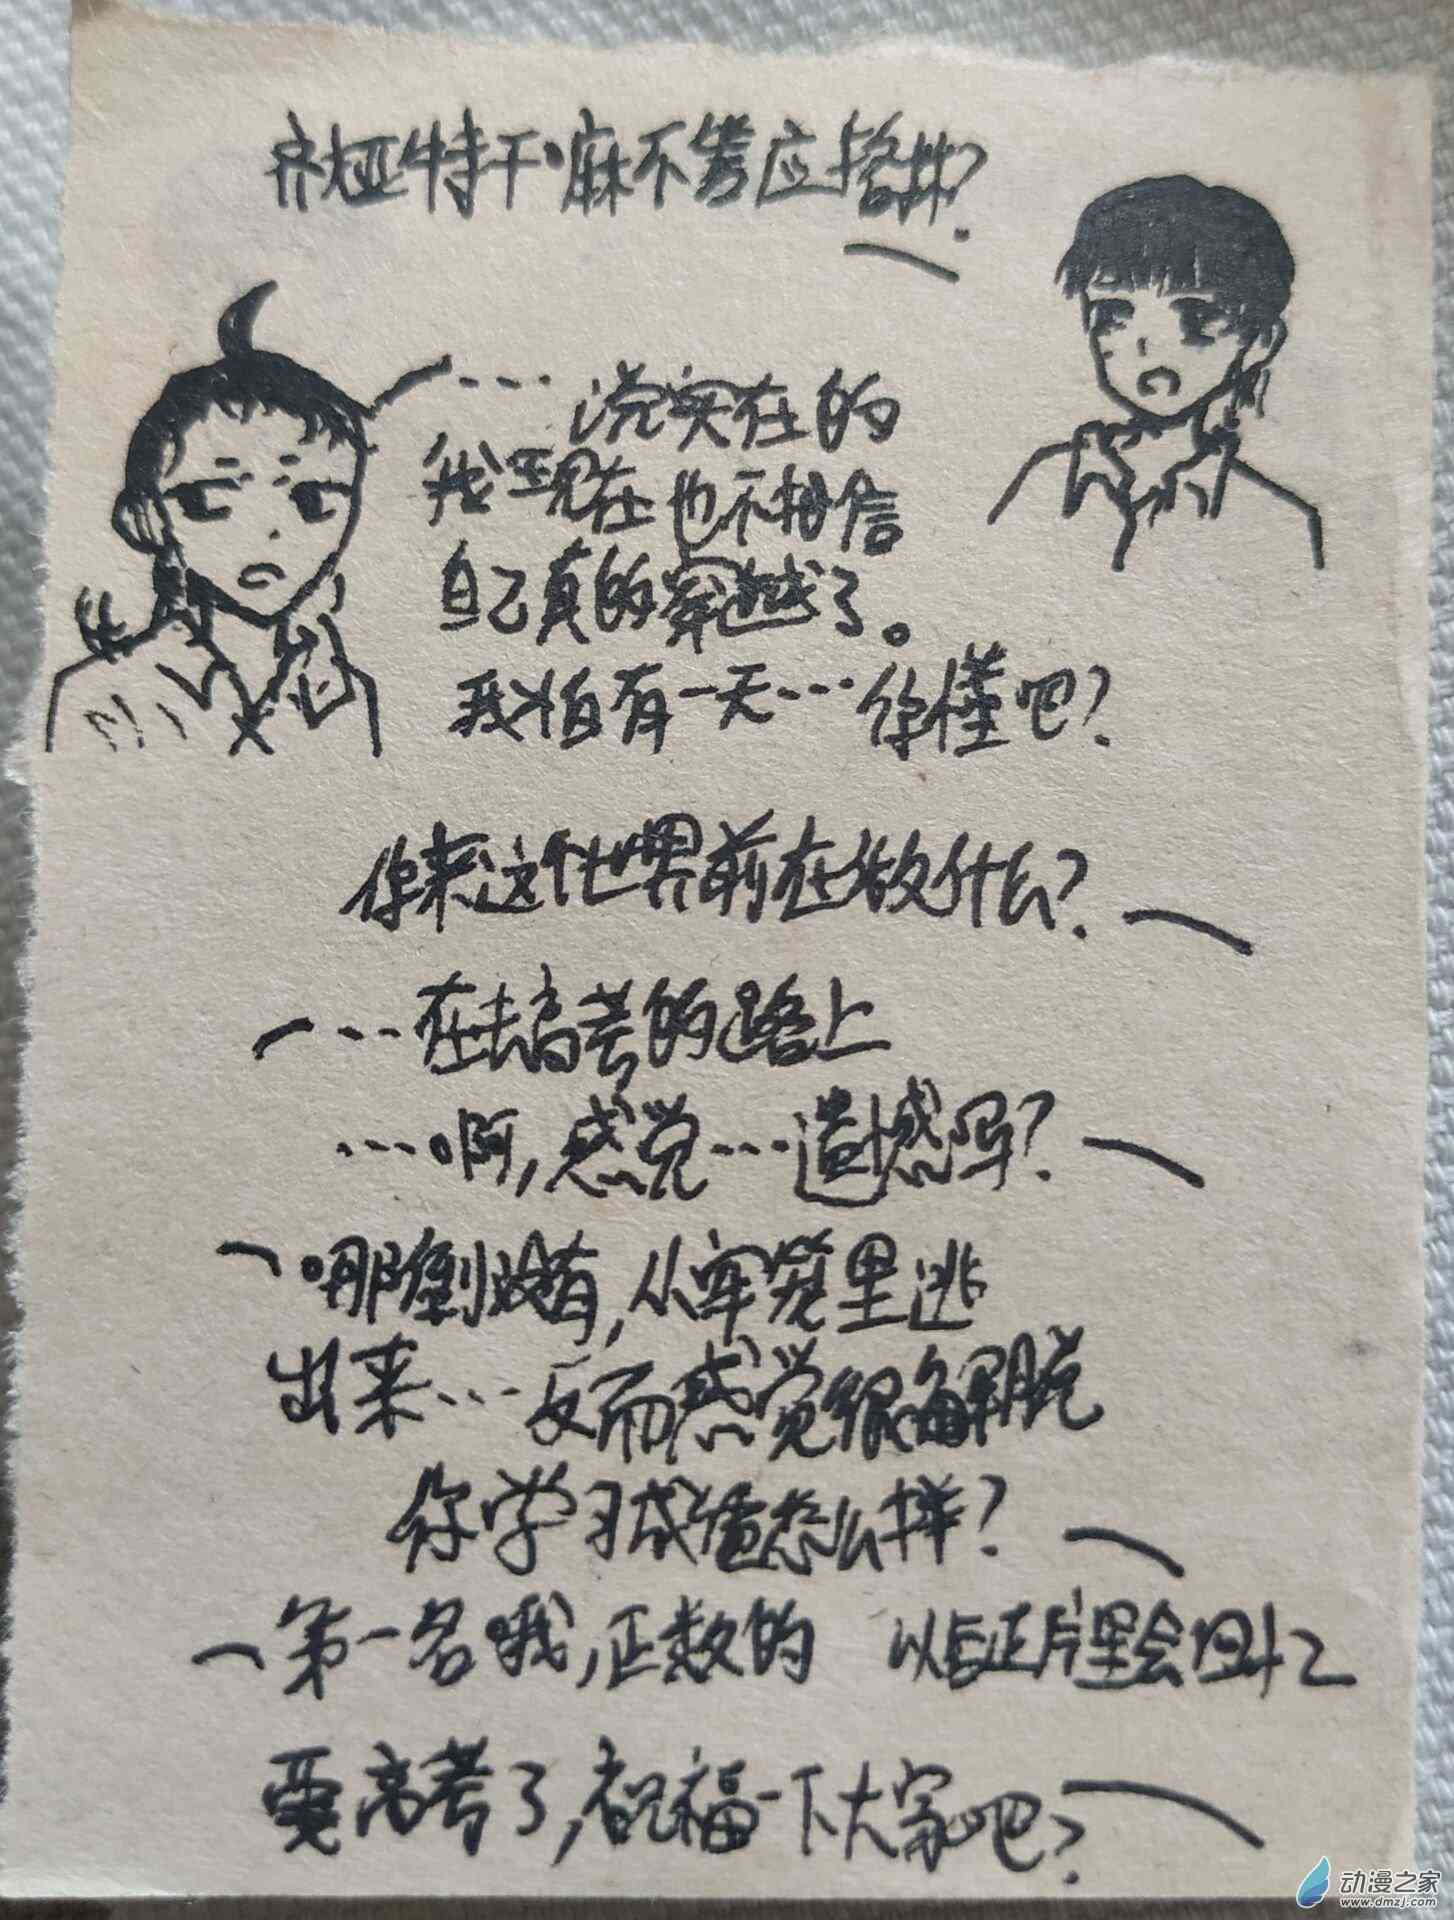 齐娅特干嘛不答应撘救?
···说实在的
我现在也不相信
自己真的穿越了。
我怕有一天···你懂吧?
你来这个世界前在做什么?
···在去高考的路上
···啊,感觉···遗憾吗?
哪倒没有,从牢笼里逃
出来···反而感觉很解脱
你学习成绩怎么样?
第一名哦,正数的 以后正片里会
要高考了,祝福一下大家吧?
动漫之家
www.dmzj.com